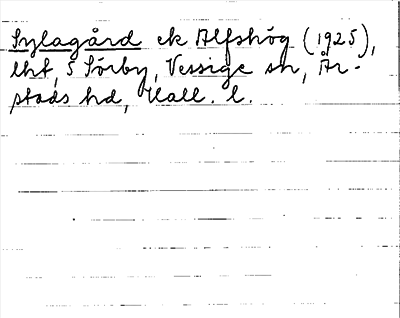 Sylagård ek Alfshög (1925),
lht, S Sörby, Vessige sn, År-
stads hd, Hall. l.